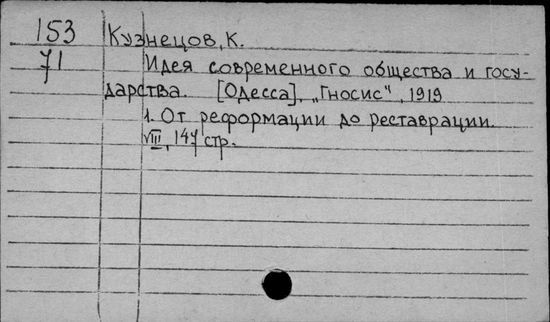 153 Кузнецов, К.
71 Идея современного общества и госу-
дарства. [Одесса], „Гносис", 1919
1. От реформации до реставрации.
VIII, 147 стр.